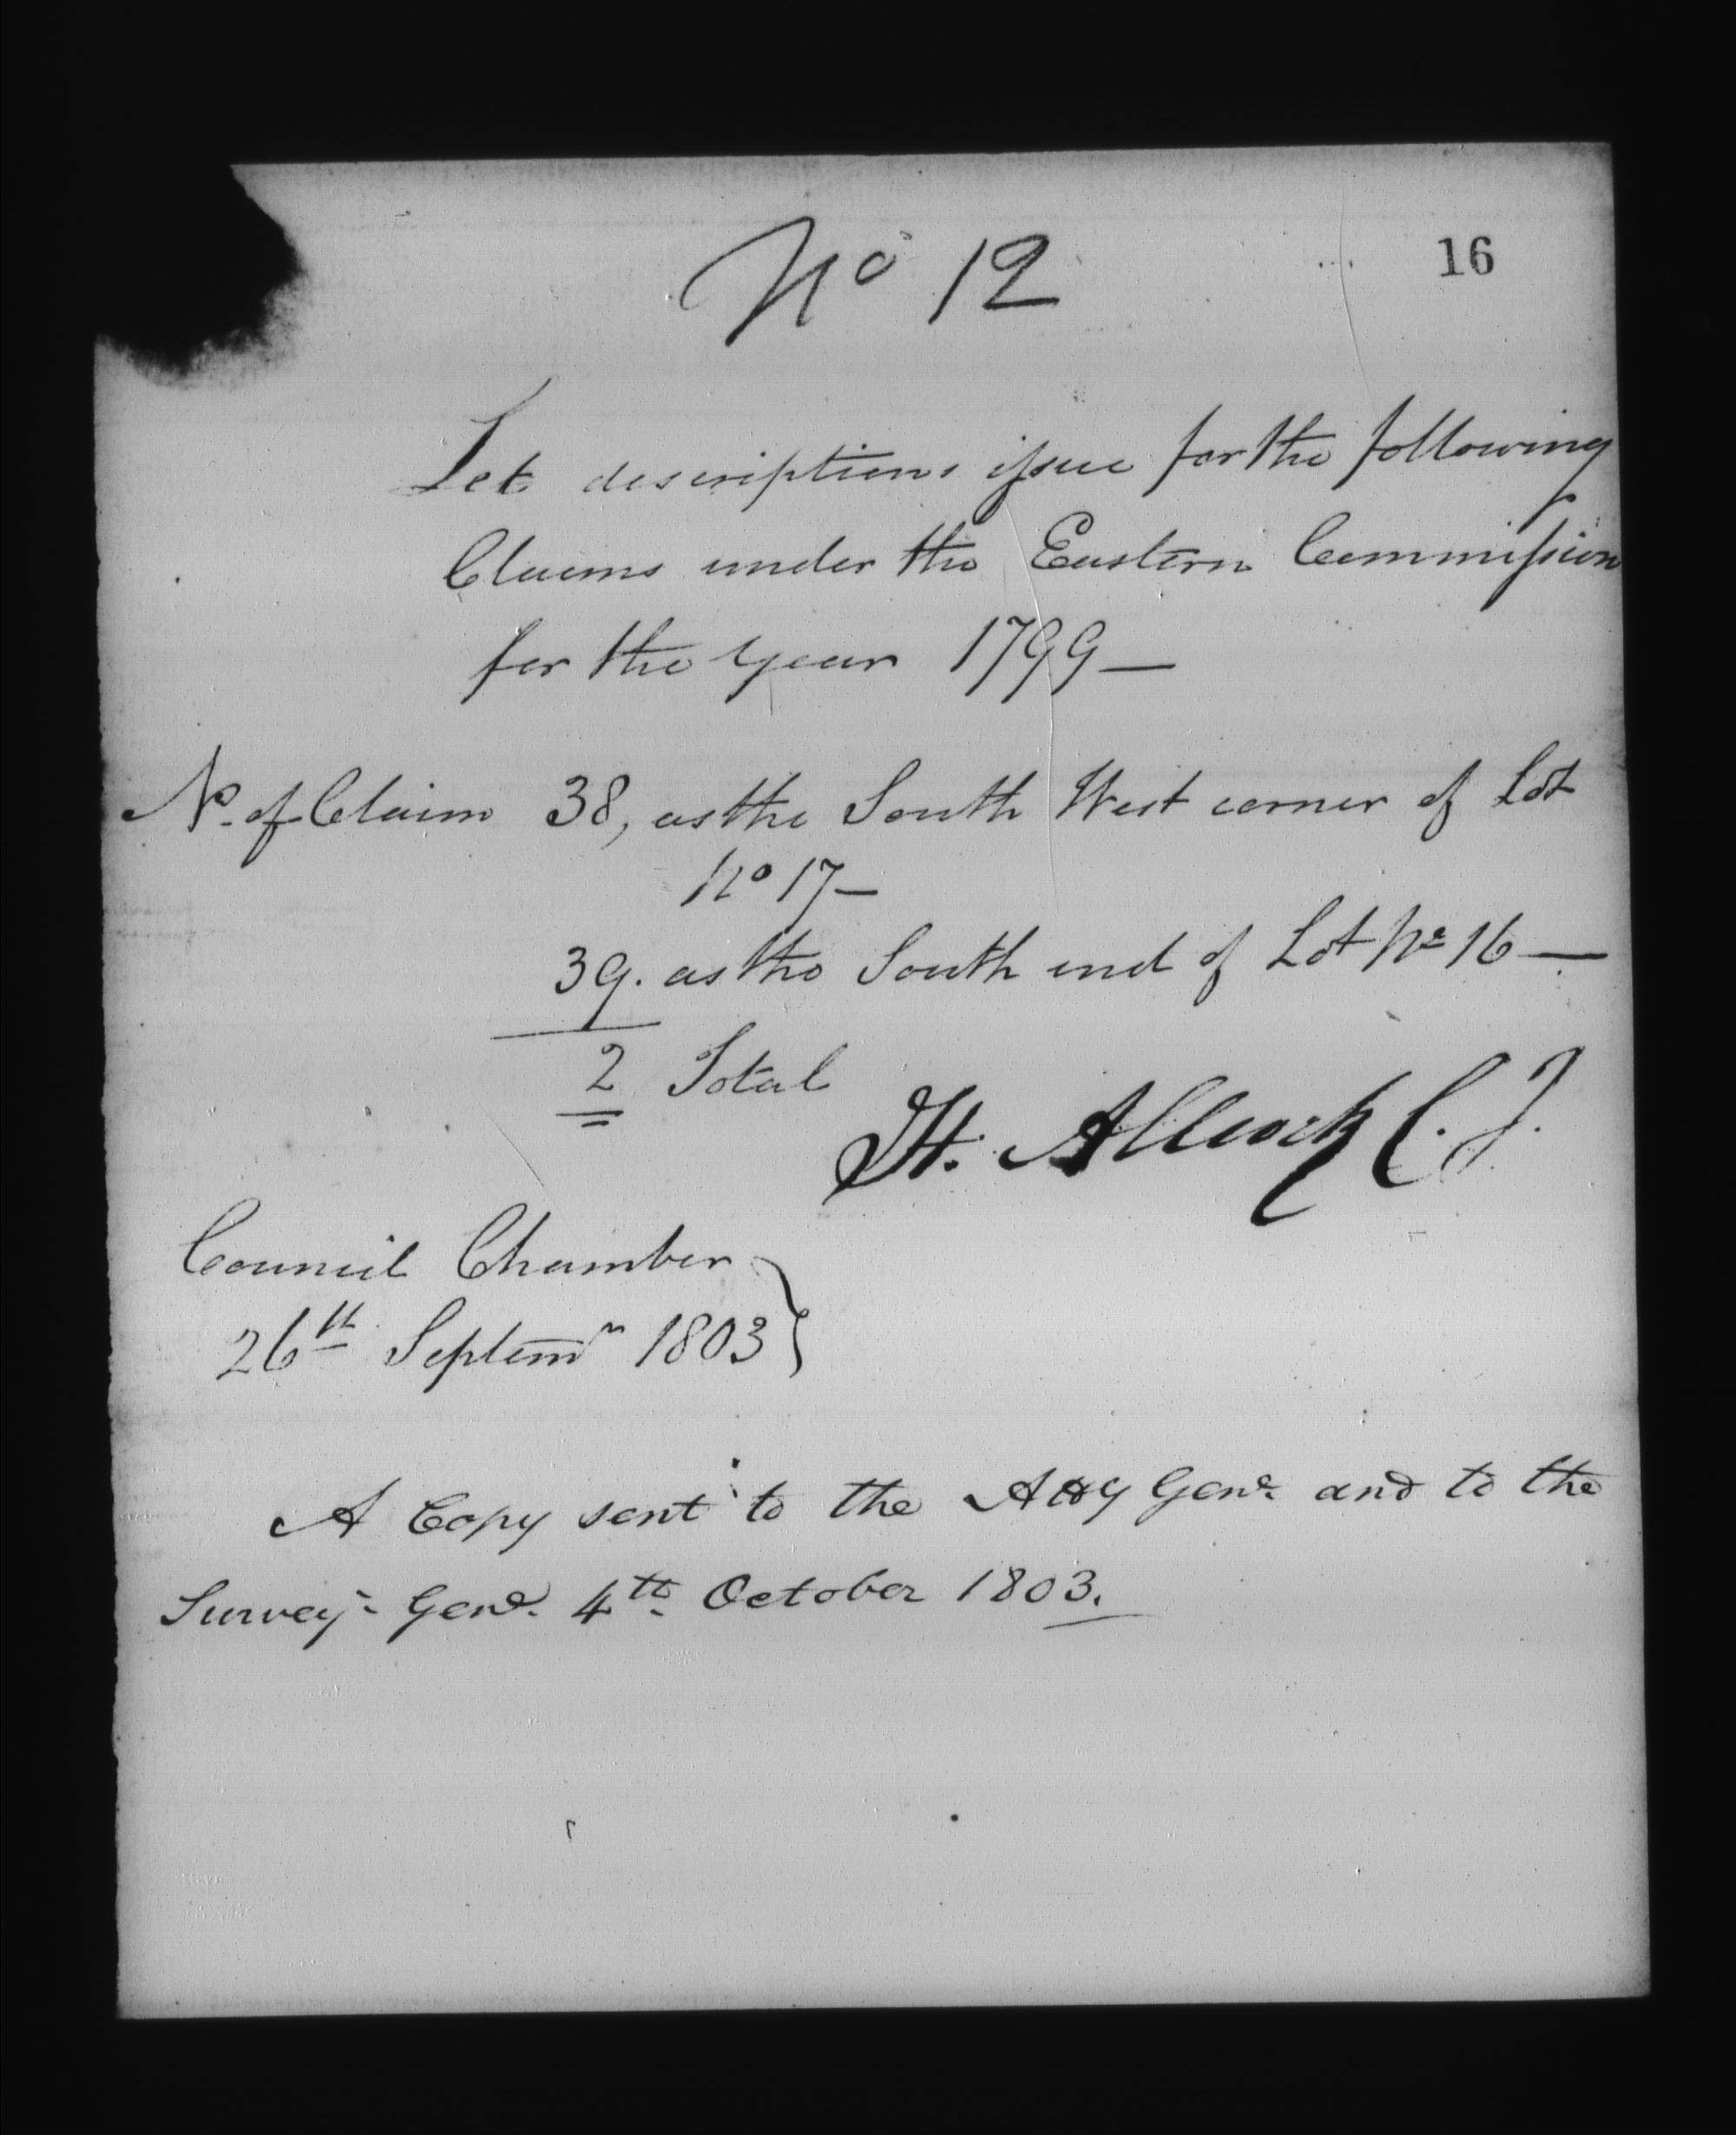 No 12
16
Let descriptions issue for the following
Claims under the Eastern Commission
for the year 1799 —
No. of Claim 38, as the South West corner of Lot
No 17 —
39. as the South end of Lot No 16 —
2 Total
H. Allcock C. J.
Council Chamber
26th Septemr 1803
A Copy sent to the Atty Genl. and to the
Surveyr Genl. 4th October 1803.